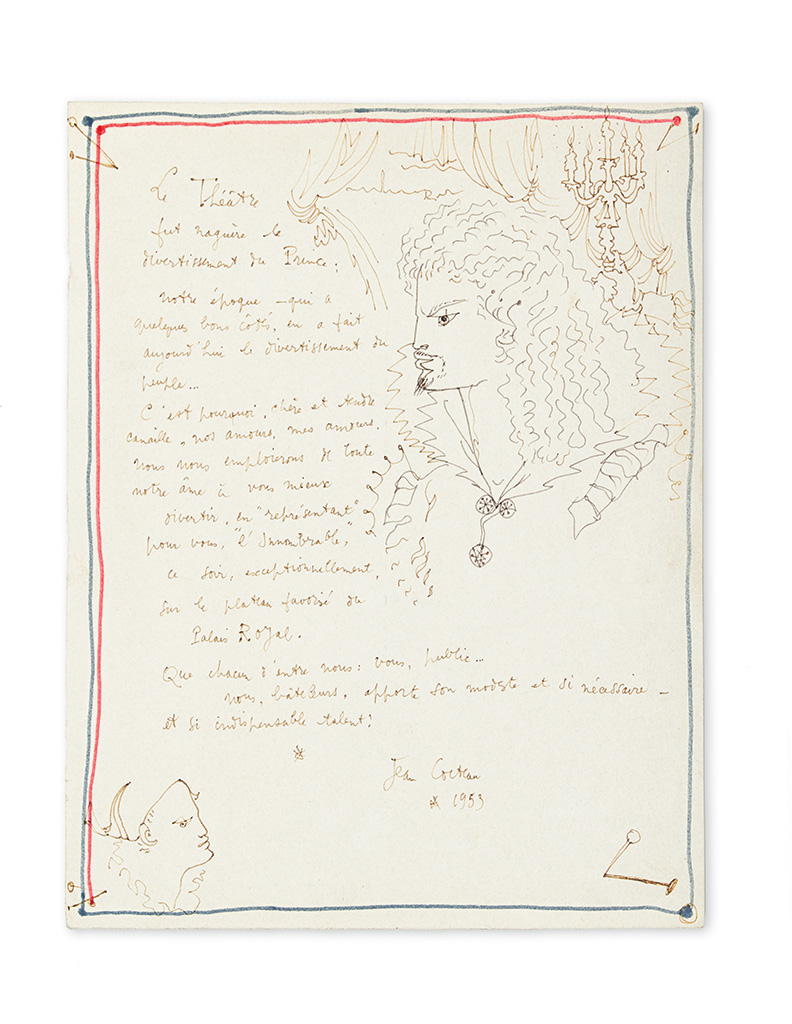 Le Théâtre
fut naguère le
divertissement du Prince;
notre époque – qui a
quelques bons côtés, en a fait
aujourd'hui le divertissement du
peuple...
C'est pourquoi, chère et tendre
canaille, nos amours, mes amours,
nous nous emploierons de toute
notre âme à vous mieux
divertir, en "représentant"
pour vous, "l'Innombrable",
ce soir, exceptionnellement,
sur le plateau favorisé du
Palais Royal.
Que chacun d'entre nous: vous, public...
nous, bateleurs, apporte son modeste et si nécessaire –
et si indispensable talent!
Jean Cocteau
* 1953